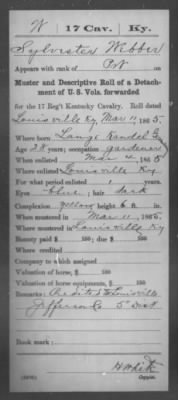 W 17 Cav. Ky.
Sylvester Webber
Appears with rank of Pvt on
Muster and Descriptive Roll of a Detach-
ment of U. S. Vols. forwarded
for the 17 Reg't Kentucky Cavalry. Roll dated
Louisville Ky Mar 11, 1865.
Where born
Age 28 years; occupation gardener
When enlisted Mar 4, 1865
Where enlisted Louisville Ky
For what period enlisted 1 years.
Eyes blue; hair dark
Complexion yellow; height 6 ft. in.
When mustered in Mar 11, 1865.
Where mustered in Louisville Ky
Bounty paid $ 100; due $ 100
Where credited
Company to which assigned
Valuation of horse, $ 100
Valuation of horse equipments, $ 100
Remarks: Credited to Louisville
Jefferson Co 5" Dist
Book mark:
H White
Copyist.